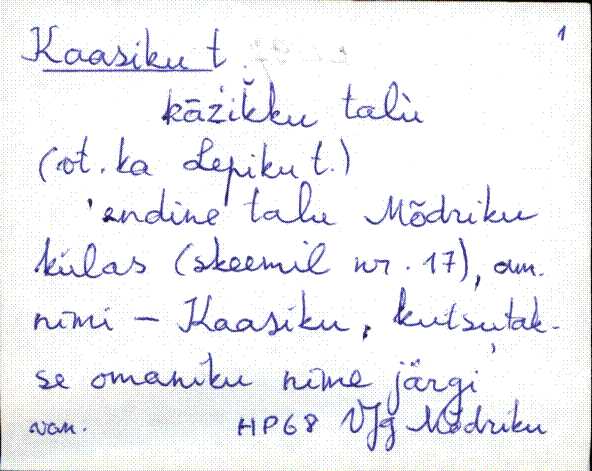 1
Kaasiku t.
kāžikku talù
(vt. ka Lepiku t.)
endine talu Mõdriku
külas (skeemil nr. 17), am.
nimi – Kaasiku, kutsutak-
se omaniku nime järgi
van. HP68 VJg Mõdriku